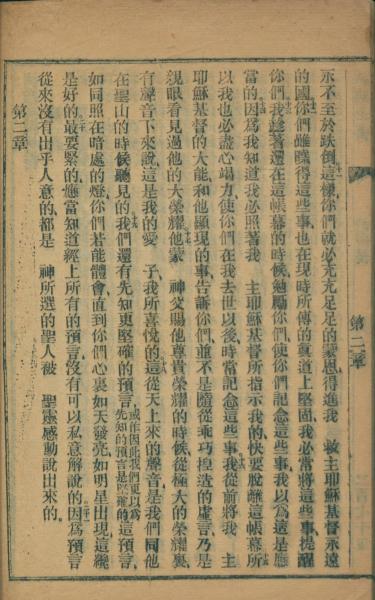 永不至於跌倒這樣你們就必充充足足的蒙恩得進我　救主耶穌基督永遠
的國你們雖曉得這些事也在現時所傳的眞道上堅固我必常將這些事提醒
你們我趁著還在這帳幕的時候勉勵你們使你們記念這些事我以爲這是應
當的因爲我知道我必照著我　主耶穌基督所指示我的快要脫離這帳幕所
以我也必盡心竭力使你們在我去世以後時常記念這些事我從前將我　主
耶穌基督的大能和他顯現的事告訴你們並不是隨從乖巧揑造的虛言乃是
親眼看見過他的大榮耀他蒙　神父賜他尊貴榮耀的時候從極大的榮耀裏
有聲音下來說這是我的愛　子我所喜悅的這從天上來的聲音是我們同他
在聖山的時候聽見的我們還有先知更堅確的預言或作因此我們更以爲先知的預言是堅確的這預言
如同照在暗處的燈你們若能體會直到你們心裏如天發亮如明星出現這纔
是好的最要緊的應當知道經上所有的預言沒有可以私意解說的因爲預言
從來沒有出乎人意的都是　神所選的聖人被　聖靈感動說出來的
第二章
第二章